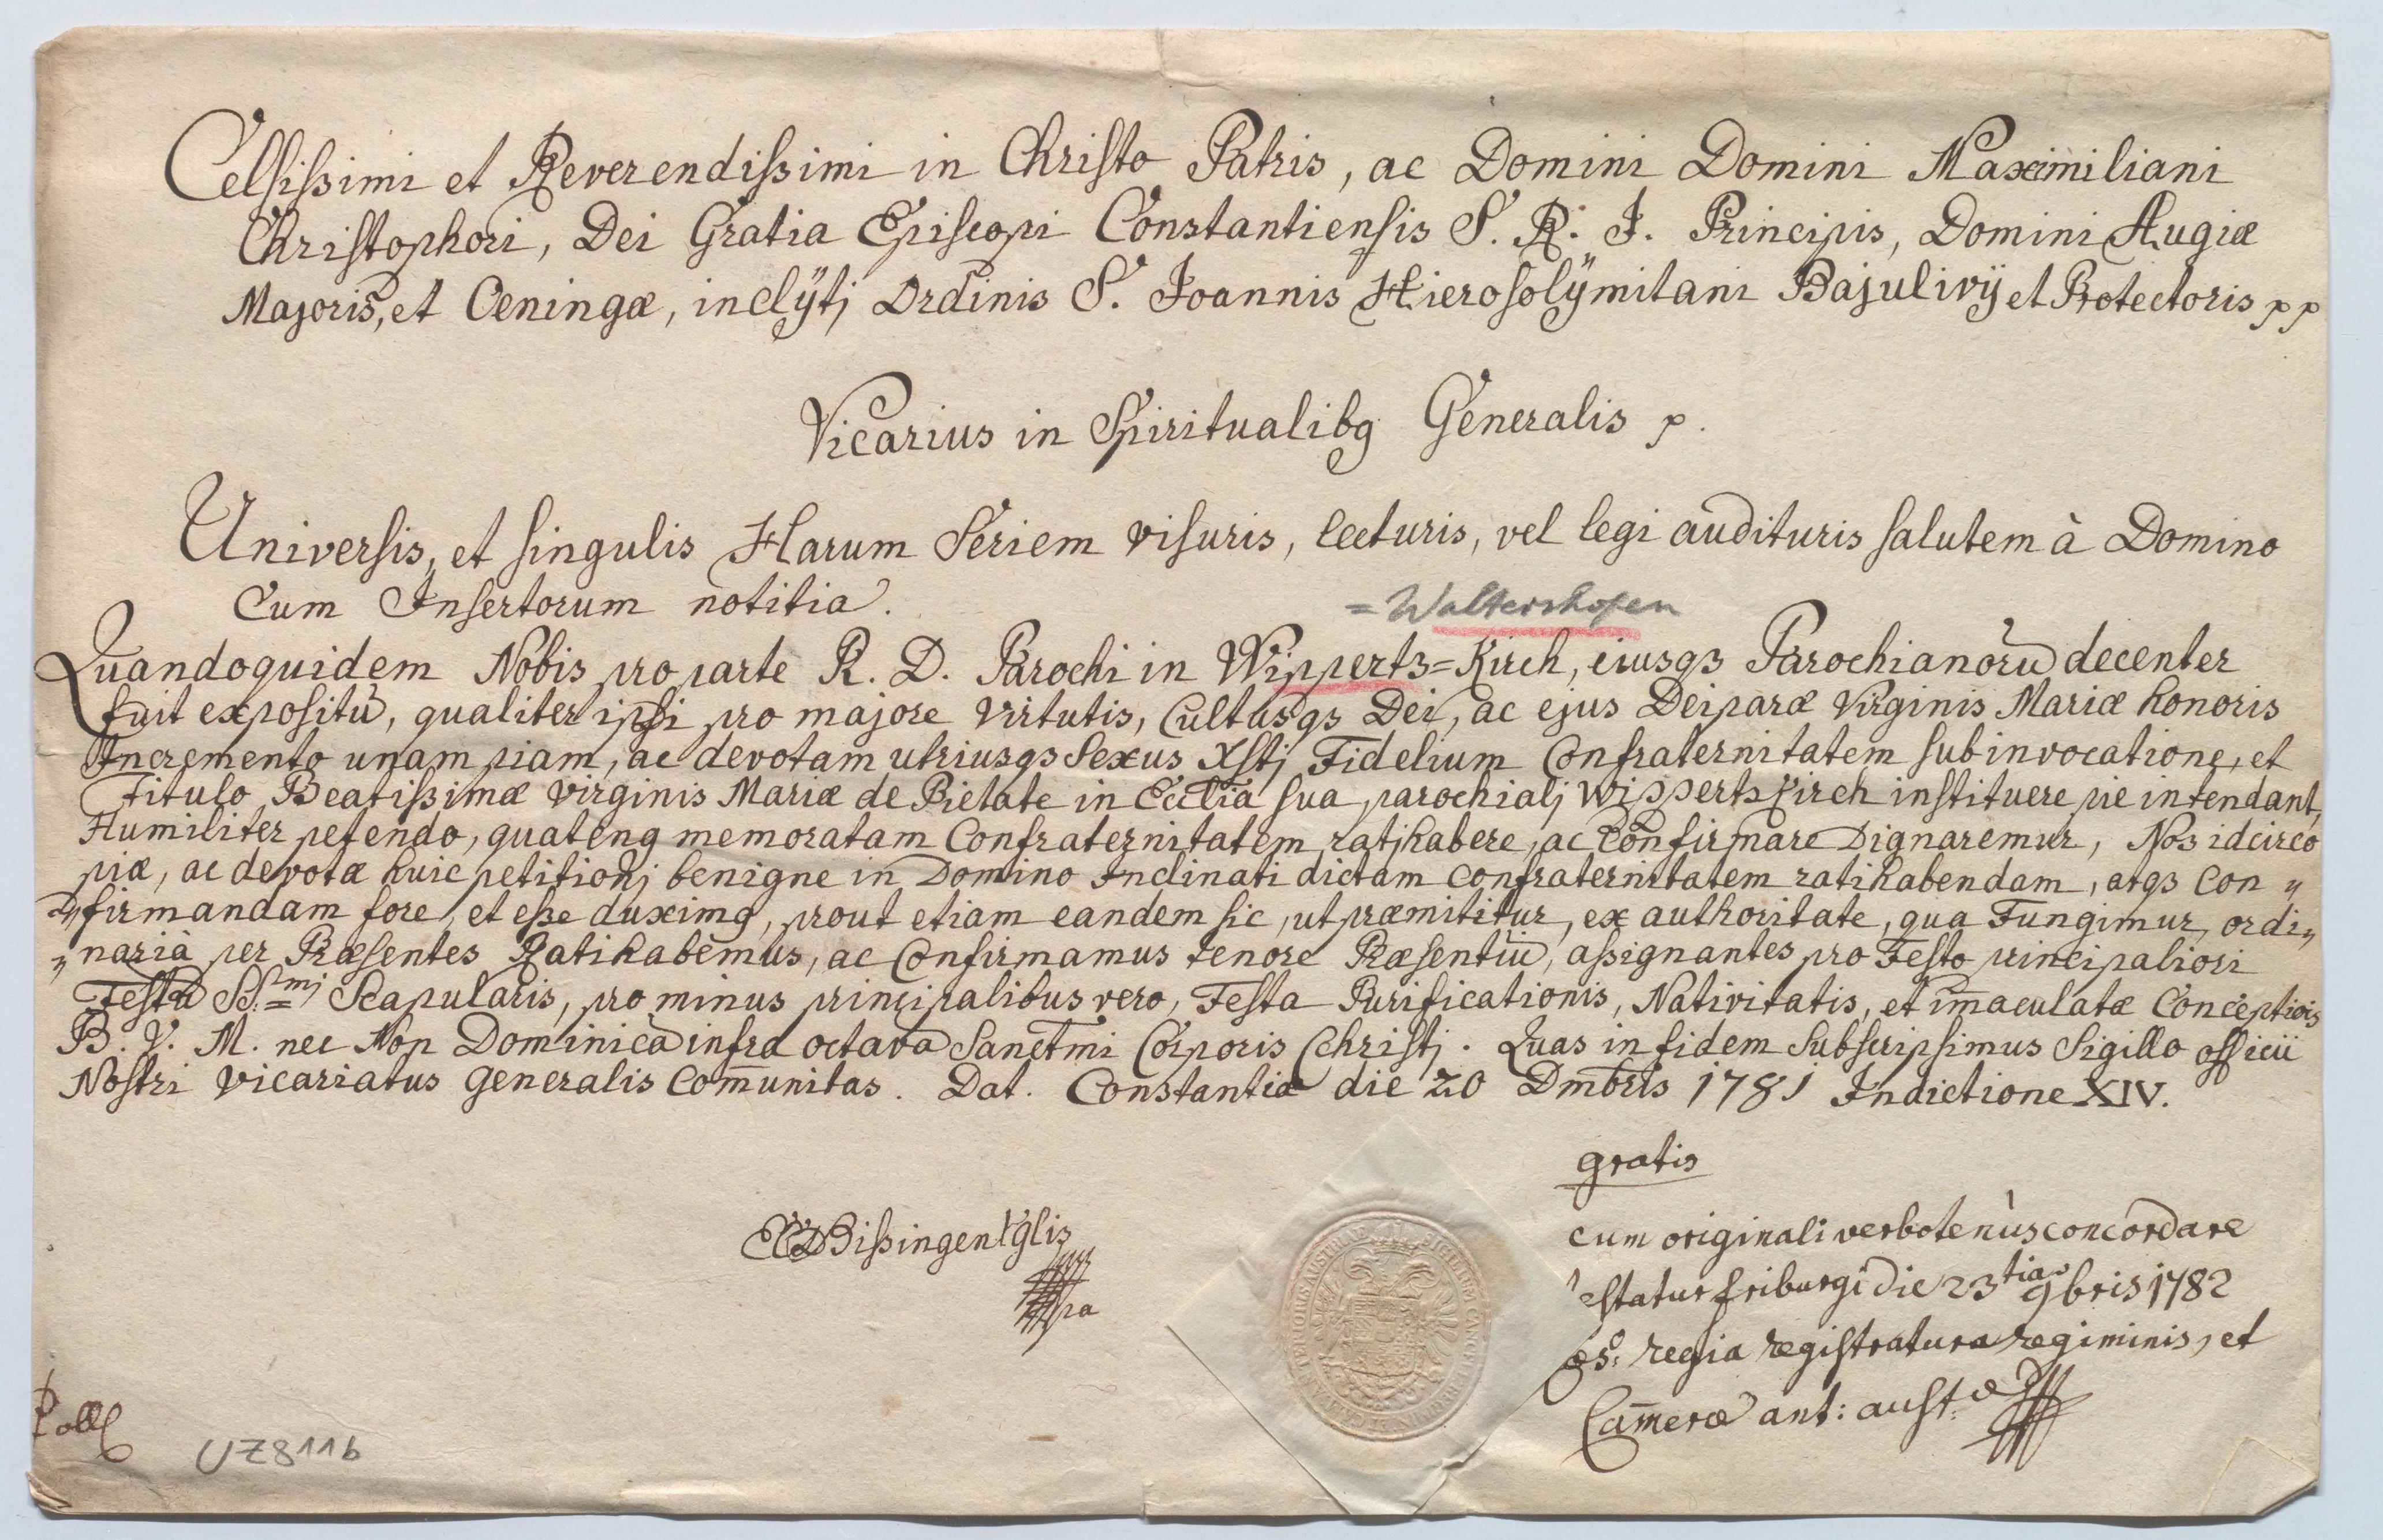 Celsissimi et Reverendissimi in Christo Patris, ac Domini Domini Maximiliani
Christophori, Dei Gratia Episcopi Constantiensis S. R. I. Principis, Domini Augiæ
Majoris, et Oeningæ, inclÿtj Ordinis S. Joannis Hierosolÿmitani Bajulivij et Protectoris pp
Vicarius in Spiritualibq Generalis p.
Universis, et singulis Harum Seriem visuris, lecturis, vel legi audituris salutem à Domino
Cum Insertorum notitia.
= Waltershofen
Quandoquidem Nobis pro parte R. D. Parochi in Wipperts=Kirch, eiusqs Parochianorũ decenter
fuit expositũ, qualiter ipsi pro majore Virtutis, Cultusqs Dei, ac ejus Deiparæ Virginis Mariæ honoris
Incremento unam piam, ac devotam utriusqs Sexus Xstj Fidelium Confraternitatem sub invocatione, et
Titulo Beatissimæ Virginis Mariæ de Pietate in Ecclĩa sua parochialj Wippertskirch instituere pie intendant,
Humiliter petendo, quatenq memoratam Confraternitatem ratihabere, ac Confirmare Dignaremur, Nos idcirco
piæ, ac devotæ huic petitionj benigne in Domino Inclinati dictam Confraternitatem ratihabendam, atqs Con„
„firmandam fore, et esse duximq, prout etiam eandem sic, ut præmititur, ex authoritate, qua Fungimur, ordi„
„nariâ per Præsentes Ratihabemus, ac Confirmamus tenore Præsentiũ, assignantes pro Festo principaliori
Festũ SS.mj Scapularis, pro minus principalibus vero, Festa Purificationis, Nativitatis, et im̅aculatæ Conceptiõis
B. V. M. nec Non Dominicã infra octavã Sanctmi Corporis Christj. Quas in fidem Subscripsimus Sigillo officii
Nostri Vicariatus Generalis Com̅unitas. Dat. Constantiæ die 20 Dmbris 1781 Indictione XIV.
gratis
Bissingen Vglis
cum originali verbotenùs concordare
testatur friburgi die 23tia 9bris 1782
cæs: regia registratura regiminis, et
Cam̅eræ ant: aust:æ
mpa
Coll
UZ811b